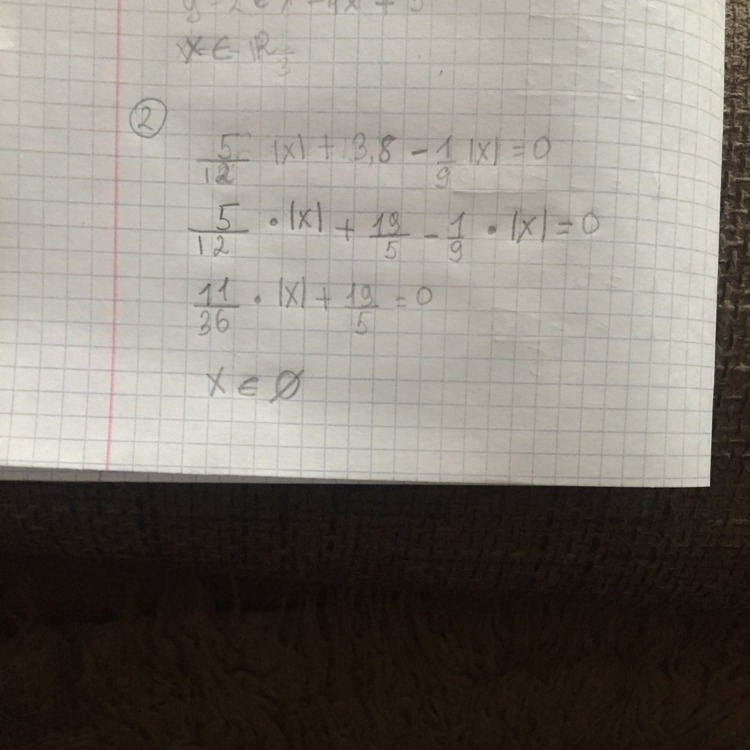 x ∈ R
②
5/12 |x| + 3,8 - 1/9 |x| = 0
5/12 • |x| + 19/5 - 1/9 • |x| = 0
11/36 • |x| + 19/5 = 0
x ∈ ∅